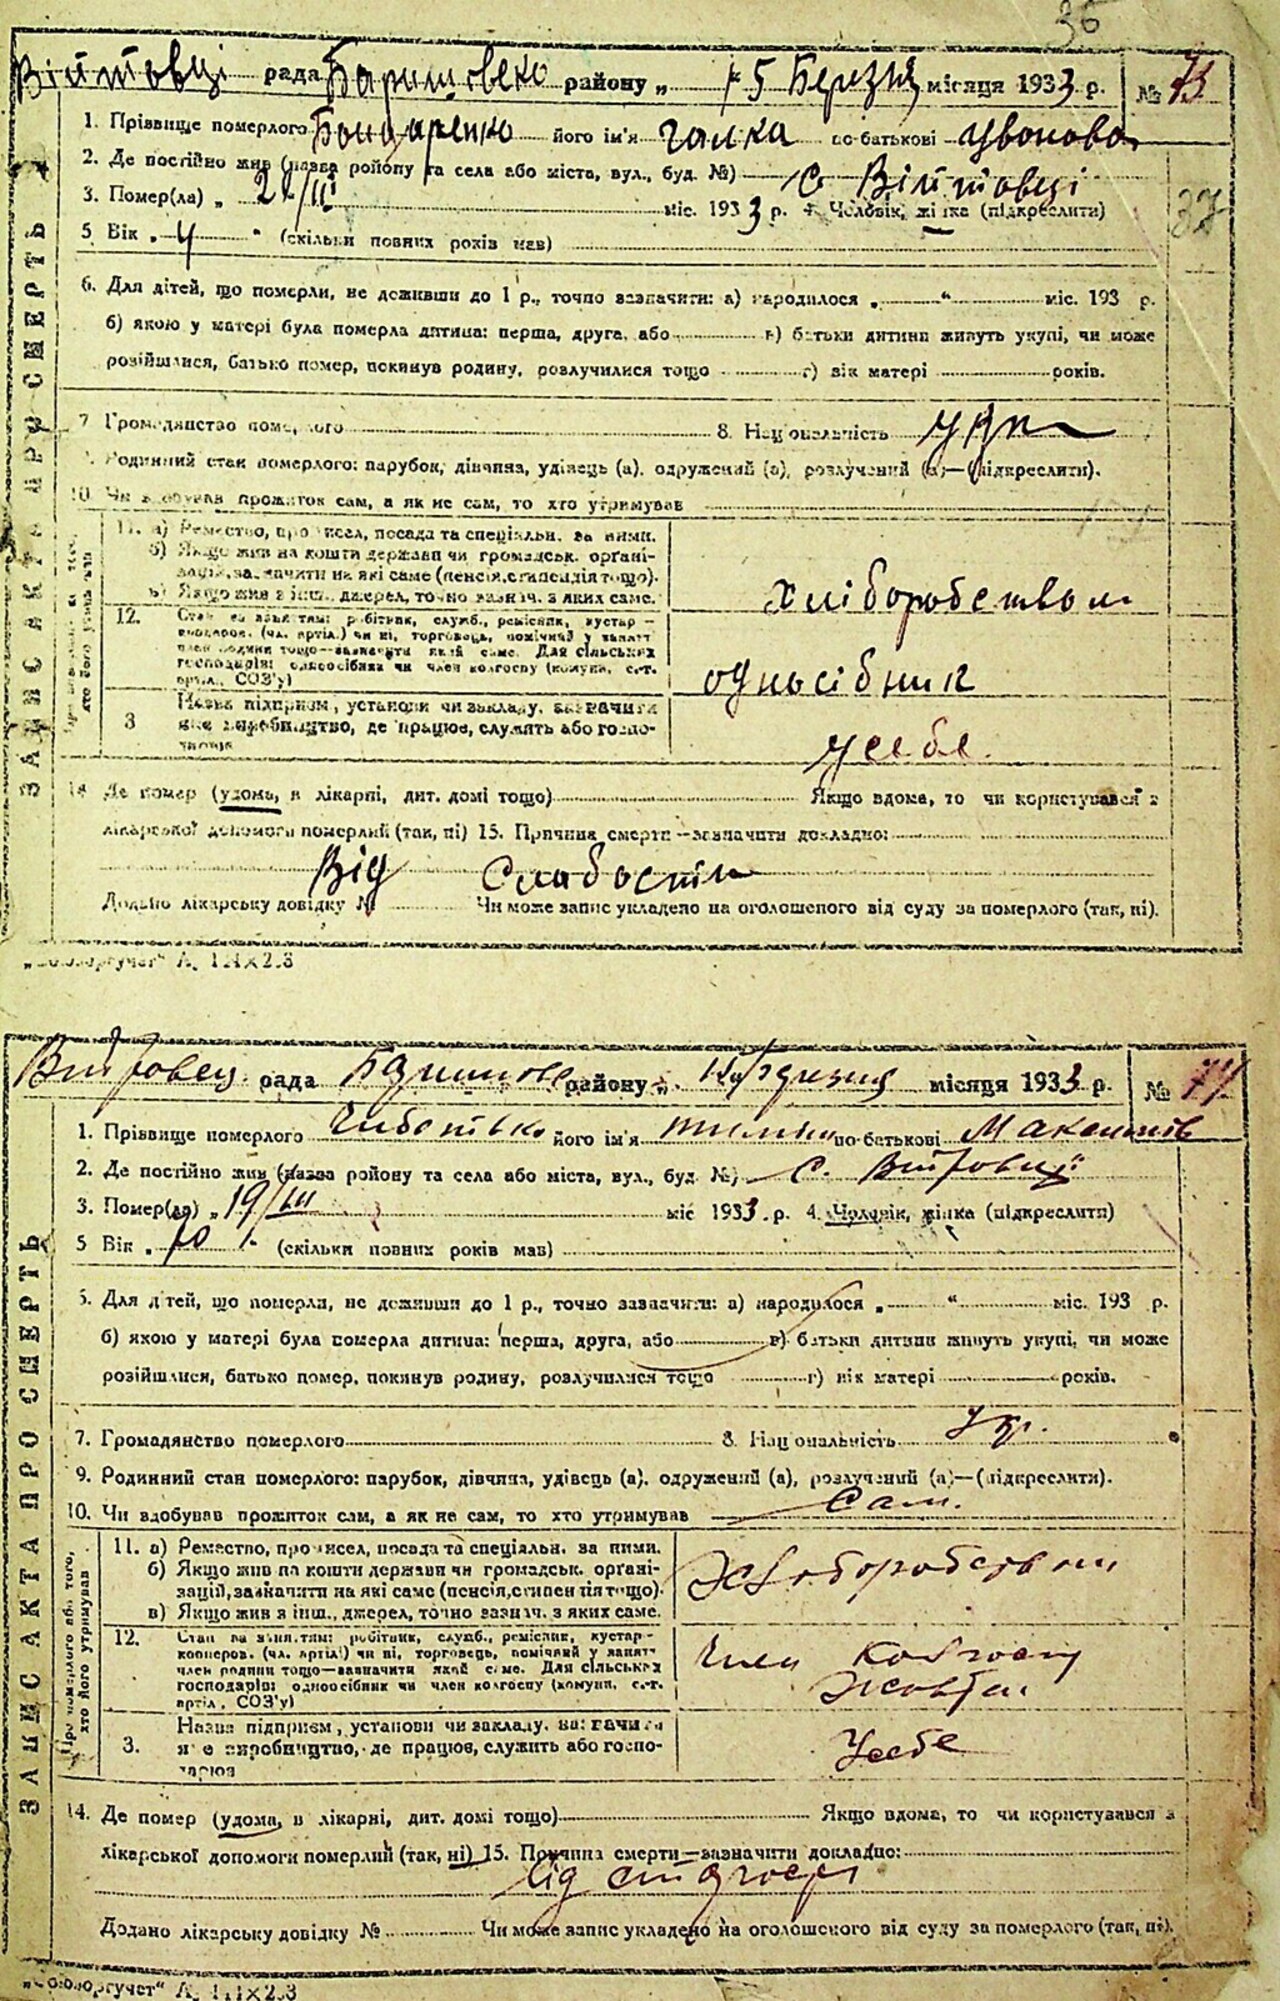 36
Війтовці рада Баришовско району „ 15 Березня місяця 1933 р. № 73
1. Прізвище померлого Бондаренко його ім'я Галка по-батькові
2. Де постійно жив (назва ройону та села або міста, вул., буд. №) С Війтовці
3. Помер(ла) „ міс. 1933 р. 4. Чоловік, жінка (підкреслити)
37
5 Вік „ 4 " (скільки повних років мав)
6. Для дітей, що померли, не доживши до 1 р., точно зазначити: а) народилося „ " міс. 193 р.
б) якою у матері була померла дитина: перша, друга, або в) батьки дитини живуть укупі, чи може
розійшлися, батько помер, покинув родину, розлучилися тощо г) вік матері років.
7 Громадянство померлого 8. Національність укр
Родинний стан померлого: парубок, дівчина, удівець (а), одружений (а), розлучений (а)—(підкреслити).
10. Чи здобував прожиток сам, а як не сам, то хто утримував
11. а) Ремество, промисел, посада та спеціальн. за ними.
б) Якщо жив на кошти держави чи громадськ. органі-
зацій, зазначити на які саме (пенсія, стипендія тощо).
в) Якщо жив з інш. джерел, точно зазнач. з яких саме.
Хліборобством
12. Стан за занятям: робітник, служб., ремісник, кустар-
кооперов. (чл. артіл.) чи ні, торговець, помічний у занят.
член родини тощо—зазначити який саме. Для сільських
господарів: одноосібник чи член колгоспу (комуни, с.-г.
артіл., СОЗ'у)
односібник
3 Назва підприєм., установи чи закладу, зазначити
яке виробництво, де працює, служить або госпо-
дарює
у себе.
14 Де помер (удома, в лікарні, дит. домі тощо) Якщо вдома, то чи користувався з
лікарської допомоги померлий (так, ні) 15. Причина смерти—зазначити докладно:
Від Слабости
Додано лікарську довідку № Чи може запис укладено на оголошеного від суду за померлого (так, ні).
ЗАПИС АКТА ПРО СМЕРТЬ
Війтовец. рада Баришовс району „ Березня місяця 1933 р. № 74
1. Прізвище померлого його ім'я по-батькові Максимов
2. Де постійно жив (назва ройону та села або міста, вул., буд №) с. Війтовці
3. Помер(ла) „ 19/III міс 1933. р. 4. Чоловік, жінка (підкреслити)
5 Вік „ 70 " (скільки повних років мав)
6. Для дітей, що померли, не доживши до 1 р., точно зазначити: а) народилося „ " міс. 193 р.
б) якою у матері була померла дитина: перша, друга, або в) батьки дитини живуть укупі, чи може
розійшлися, батько помер, покинув родину, розлучилися тощо г) вік матері років.
7. Громадянство померлого 8. Національність Укр.
9. Родинний стан померлого: парубок, дівчина, удівець (а), одружений (а), розлучений (а)—(підкреслити).
10. Чи здобував прожиток сам, а як не сам, то хто утримував Сам.
Про померлого або того, хто його утримував
11. а) Ремество, промисел, посада та спеціальн. за ними.
б) Якщо жив на кошти держави чи громадськ. органі-
зацій, зазначити на які саме (пенсія, стипендія тощо).
в) Якщо жив з інш., джерел, точно зазнач. з яких саме.
Хліборобством
12. Стан за занятям: робітник, служб., ремісник, кустар-
кооперов. (чл. артіл.) чи ні, торговець, помічний у занят.
член родини тощо—зазначити який саме. Для сільських
господарів: одноосібник чи член колгоспу (комуни, с.-г.
артіл., СОЗ'у)
Член колгоспу
Жовтен
3. Назва підприєм., установи чи закладу, зазначити
яке виробництво, де працює, служить або госпо-
дарює
Усебе
14. Де помер (удома, в лікарні, дит. домі тощо) Якщо вдома, то чи користувався з
лікарської допомоги померлий (так, ні) 15. Причина смерти—зазначити докладно:
Від
Додано лікарську довідку № Чи може запис укладено на оголошеного від суду за померлого (так, ні).
ЗАПИС АКТА ПРО СМЕРТЬ